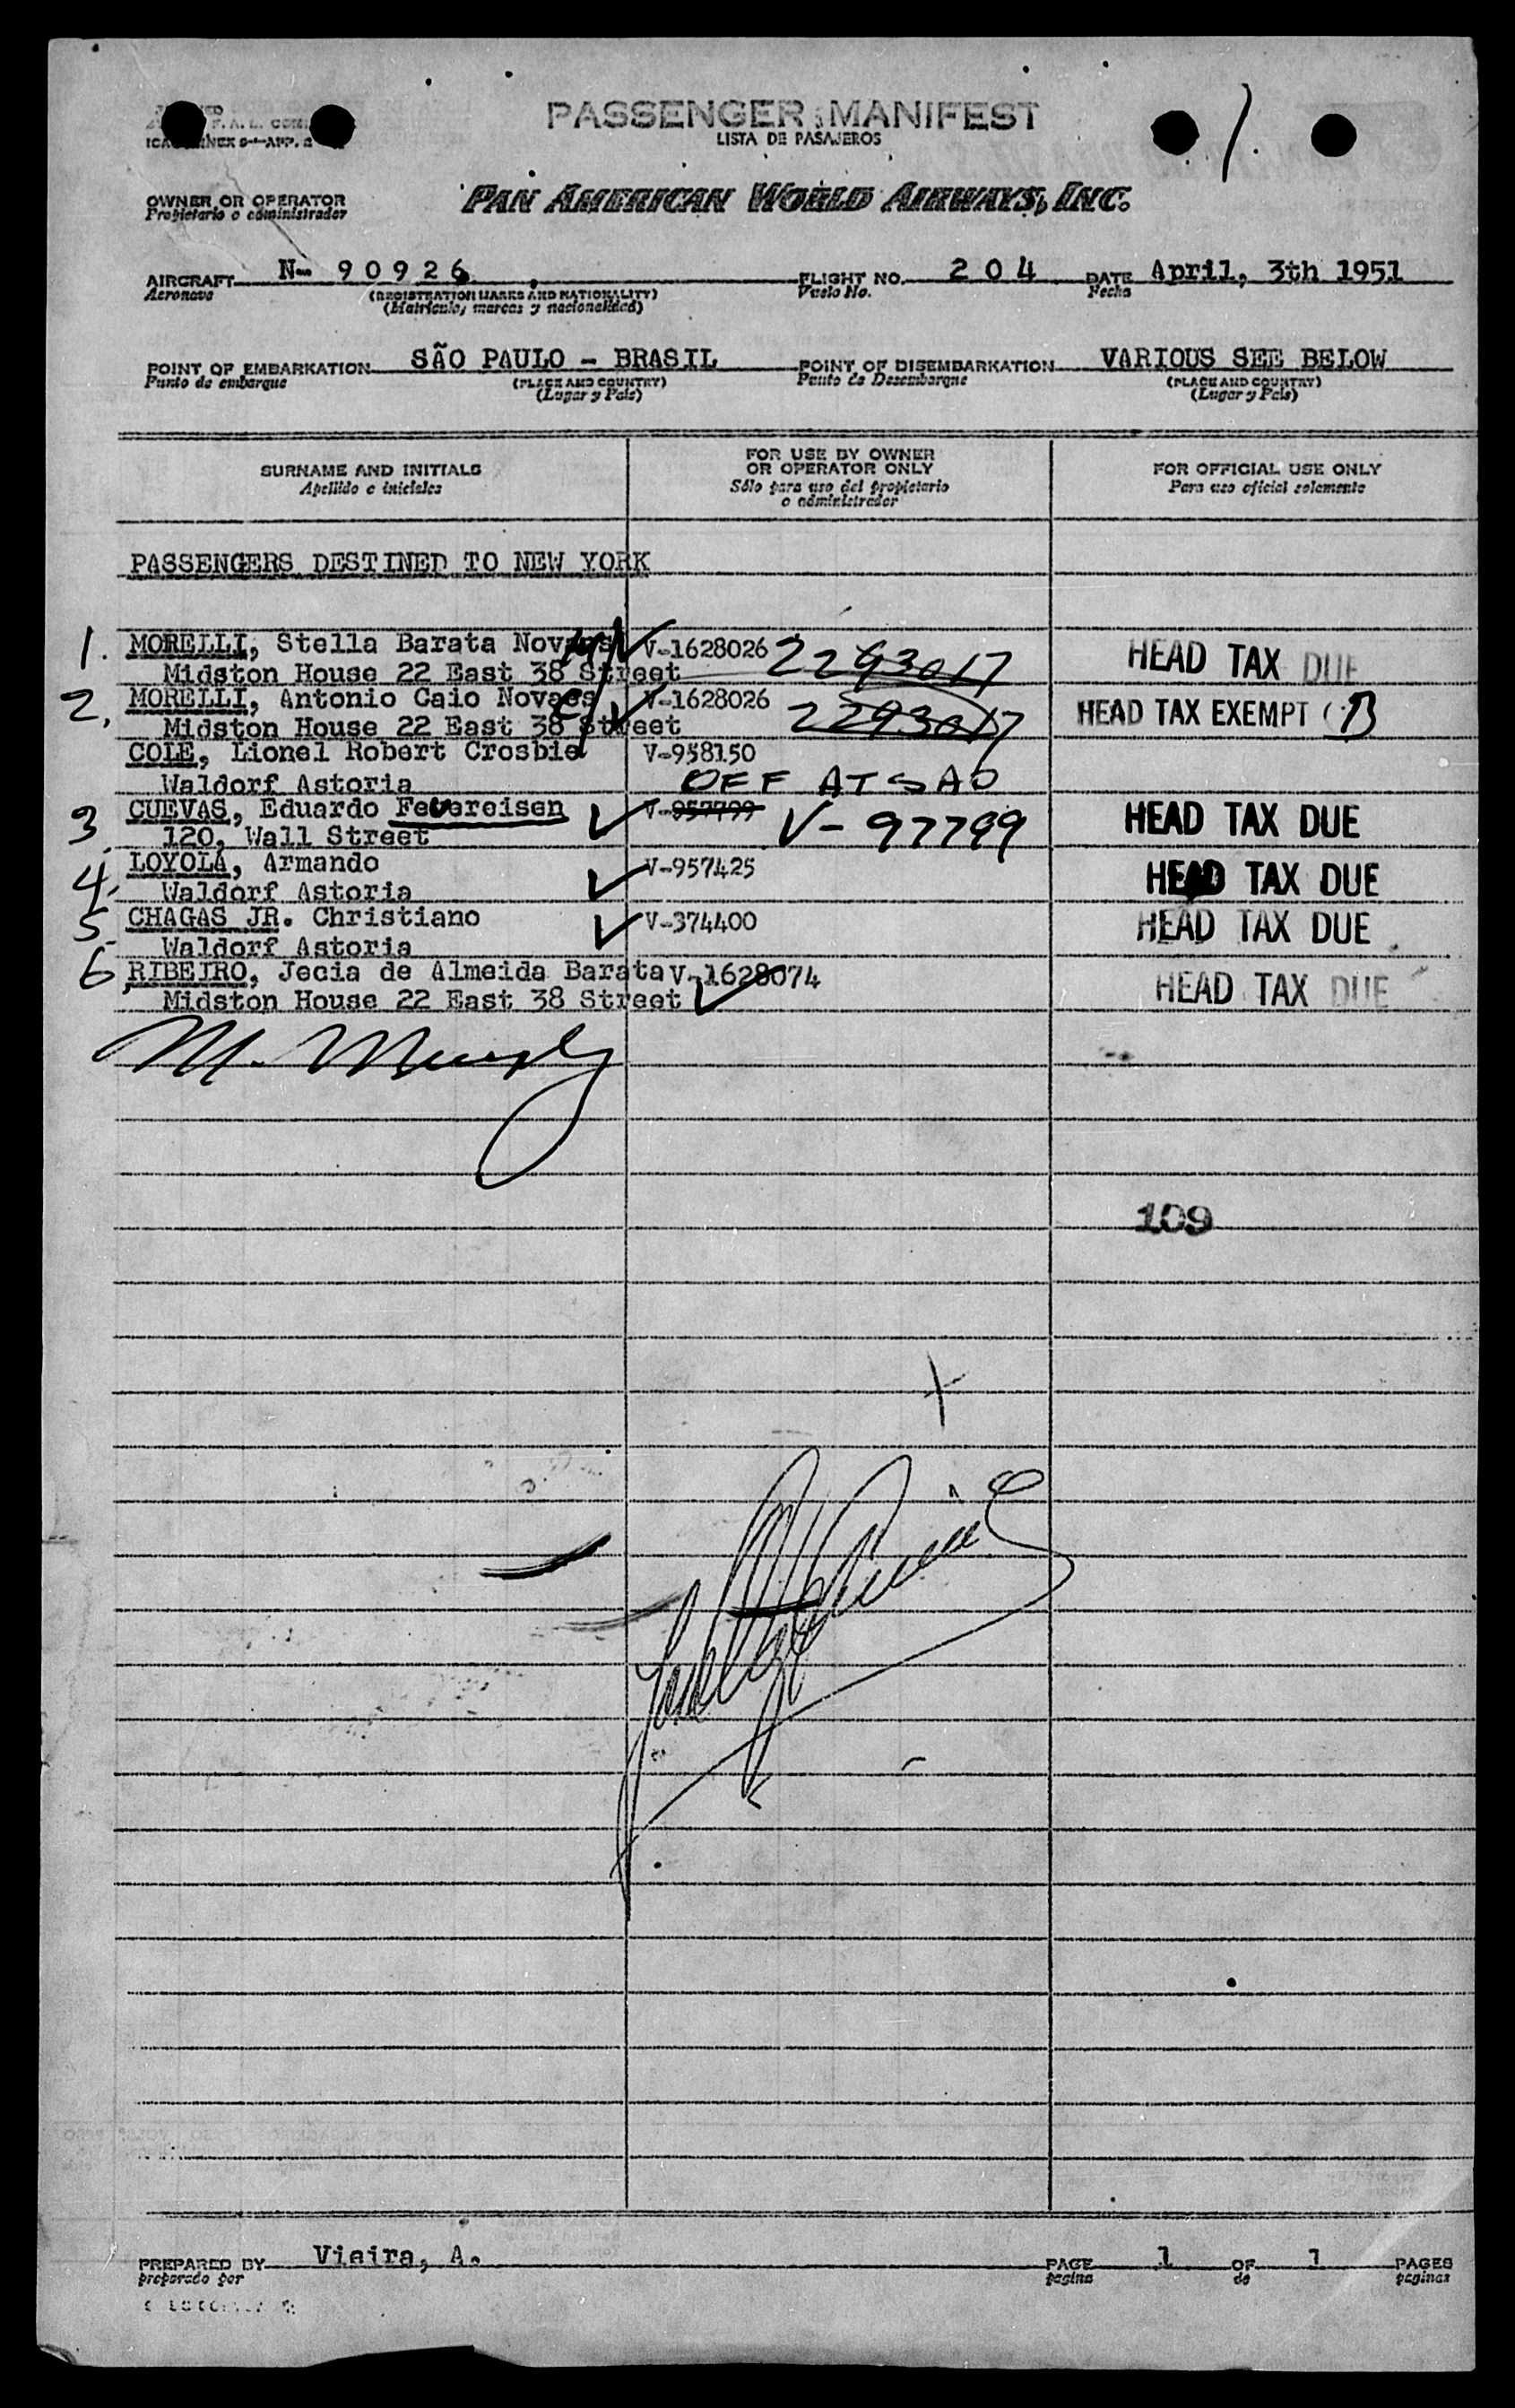 PASSENGER MANIFEST
LISTA DE PASAJEROS
F. A. L. 
APP.
OWNER OR OPERATOR
Propietario o administrador
PAN AMERICAN WORLD AIRWAYS, INC.
AIRCRAFT N- 90926 FLIGHT NO. 204 DATE April, 3th 1951
Aeronave (REGISTRATION MARKS AND NATIONALITY) Vuelo No. Fecha
(Matrícula, marcas y nacionalidad)
POINT OF EMBARKATION SÃO PAULO - BRASIL POINT OF DISEMBARKATION VARIOUS SEE BELOW
Punto de embarque (PLACE AND COUNTRY) Punto de Desembarque (PLACE AND COUNTRY)
(Lugar y País) (Lugar y País)
SURNAME AND INITIALS FOR USE BY OWNER OR OPERATOR ONLY FOR OFFICIAL USE ONLY
Apellido e iniciales Sólo para uso del propietario o administrador Para uso oficial solamente
PASSENGERS DESTINED TO NEW YORK
1. MORELLI, Stella Barata Novaes V-1628026 2293017 HEAD TAX DUE
Midston House 22 East 38 Street
2. MORELLI, Antonio Caio Novaes V-1628026 2293017 HEAD TAX EXEMPT (B
Midston House 22 East 38 Street
COLE, Lionel Robert Crosbie V-958150
Waldorf Astoria OFF AT SAO
3. CUEVAS, Eduardo Fevereisen V-957799 V-97799 HEAD TAX DUE
120, Wall Street
4. LOYOLA, Armando V-957425 HEAD TAX DUE
Waldorf Astoria
5. CHAGAS JR. Christiano V-374400 HEAD TAX DUE
Waldorf Astoria
6. RIBEIRO, Jecia de Almeida Barata V-1628074 HEAD TAX DUE
Midston House 22 East 38 Street
M. Murphy
109
PREPARED BY Vieira, A. PAGE 1 OF 1 PAGES
preparado por pagina de paginas